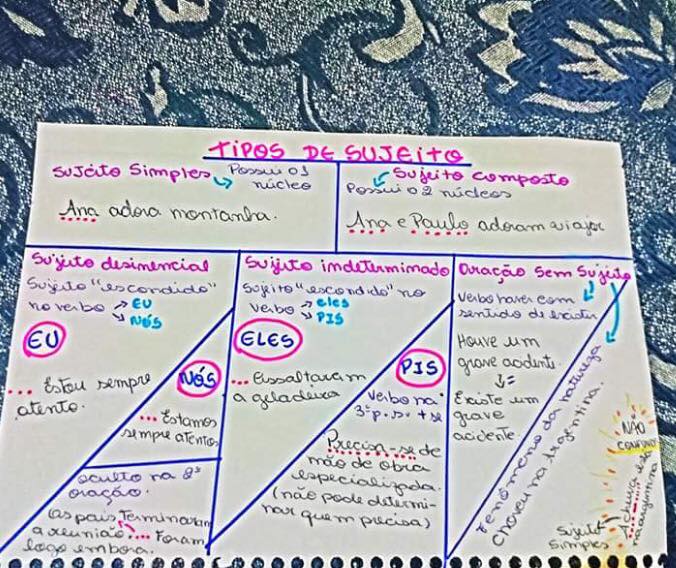 TIPOS DE SUJEITO
Sujeito Simples
Possui 01
núcleo
Ana adora montanha.
Sujeito composto
Possui 02 núcleos
Ana e Paulo adoram viajar
Sujeito desinencial
Sujeito "escondido"
no verbo → EU
NÓS
EU
... Estou sempre
atento.
NÓS
... Estamos
sempre atentos
oculto na 2ª
oração.
Os pais Terminaram
a reunião.... Foram
logo embora.
Sujeito indeterminado
Sujeito "escondido" no
verbo → eles
PIS
ELES
...
a geladeira
PIS
Verbo na
3ª p. s. + se
Precisa-se de
mão de obra
especializada.
(não pode determi-
nar quem precisa)
Oração Sem Sujeito
Verbo haver com
sentido de existir
Houve um
grave acidente.
↓=
Existe um
grave
acidente.
Fenômeno da natureza
choveu na Argentina.
NÃO
CONFUNDIR
A chuva
na argentina
Sujeito
Simples